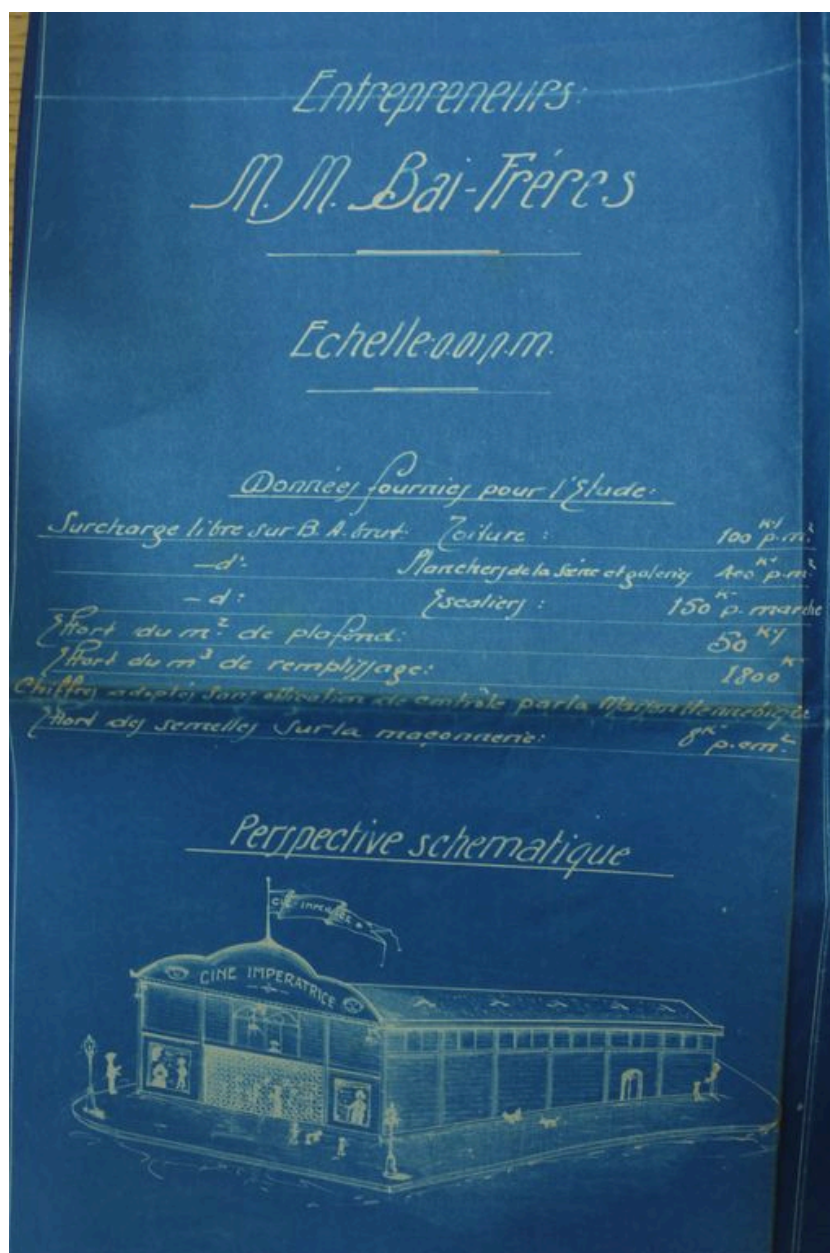 Entrepreneurs:
M. M. Bai-Fréres
Echelle: 0.01 p.m.
Données fournies pour l'Etude:
Surcharge libre sur B. A. brut: Toiture : 100 Kg p.m.²
— d°: Planchers de la Scène et galerie 400 Kg p.m.²
— d°: Escaliers : 150 K p. marche
Effort du m² de plafond: 50 Kg
Effort du m³ de remplissage: 1800 K
Chiffres adoptés sans obligation de contrôle par la Maison Hennebique
Effort des semelles sur la maçonnerie: 8 K p.cm.²
Perspective schematique
CINE IMPERATRICE